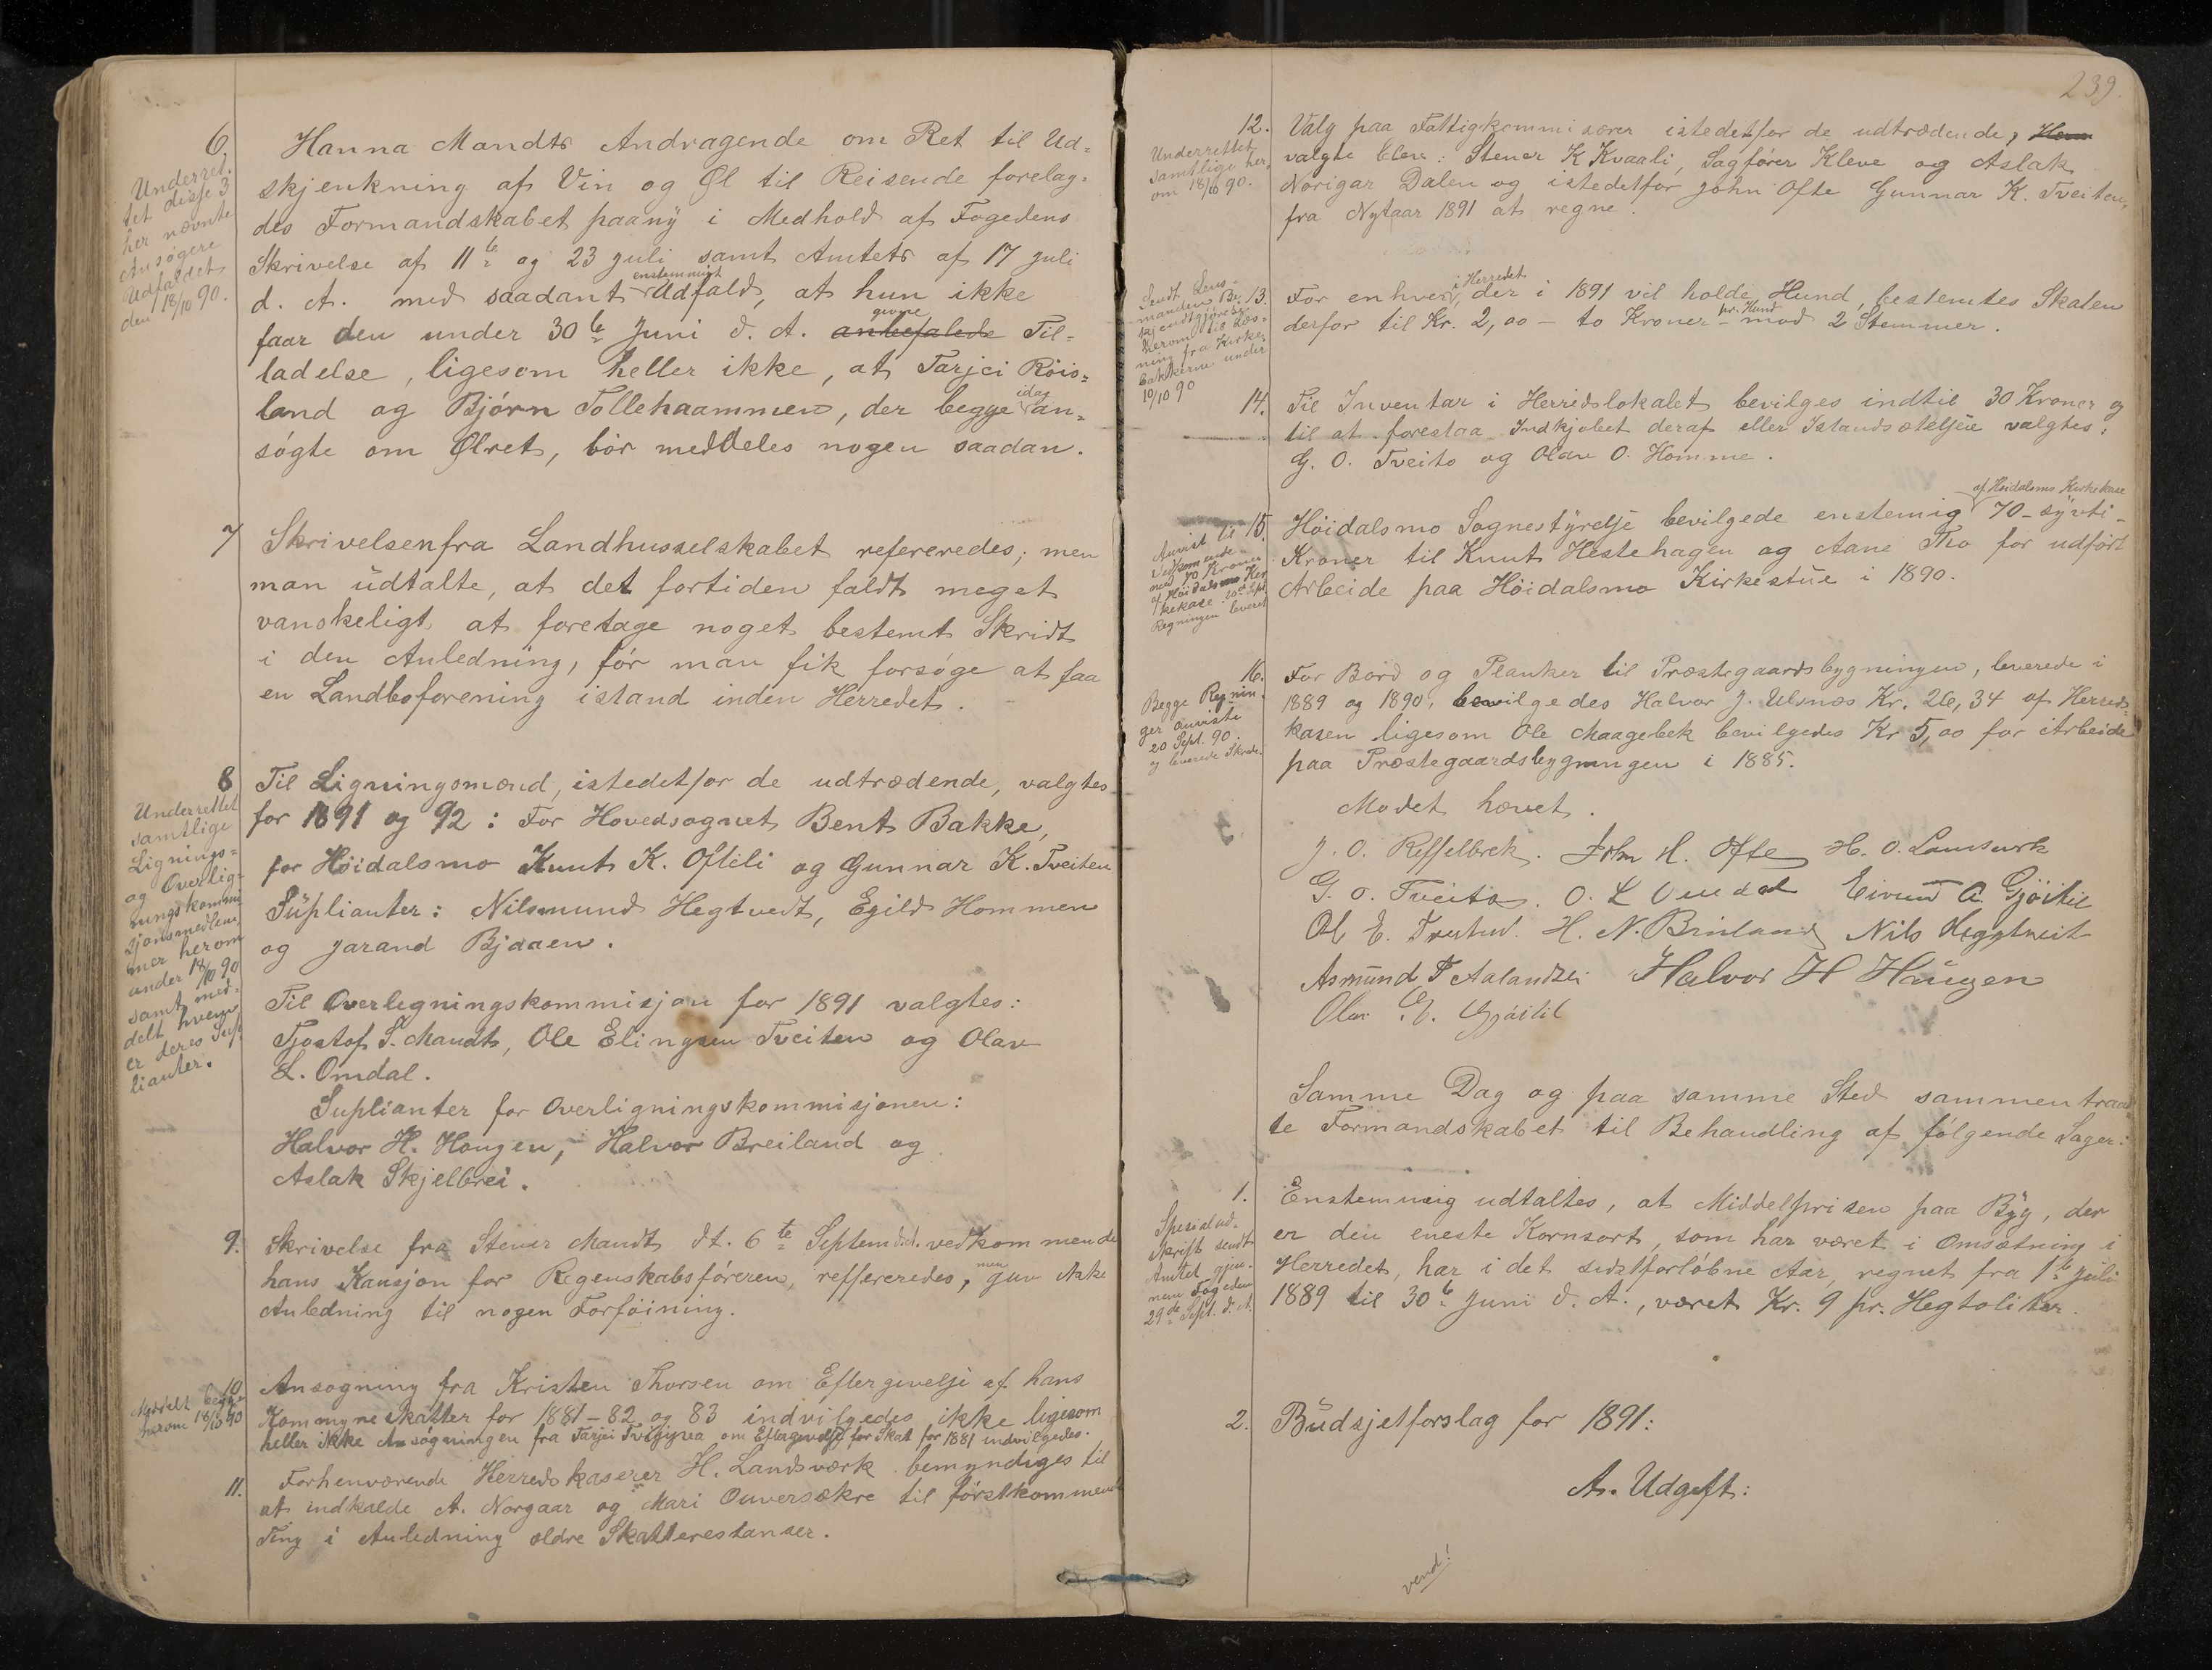 6. Hanna Mandts Andragende om Ret til Ud=
skjenkning af Vin og Øl til Reisende forelag=
des Formandskabet paany i Medhold af Fogedens
Skrivelse af 11te og 23 juli samt Amtets af 17 juli
d. A. med saadant enstemmigt Udfald, at hun ikke
faar den under 30te Juni d. A. anbefalede givne Til=
ladelse, ligesom heller ikke, at Tarjei Röis=
land og Björn Tollehaammen, der begge idag an=
søgte om Ølret, bör meddeles nogen saadan.
Underret=
tet disse 3
her nævnte
Ansøgere
Udfaldet
den 18/10 90.
7 Skrivelsen fra Landhusselskabet refereredes; men
man üdtalte, at det fortiden faldt meget
vanskeligt at foretage noget bestemt Skridt
i den Anledning, för man fik forsøge at faa
en Landboforening istand inden Herredet.
8 Til Ligningsmænd, istedetfor de udtrædende, valgtes
for 1891 og 92: For Hovedsognet Bent Bakke,
for Höidalsmo Knut K. Oftili og Gunnar K. Tveiten
Süplianter: Nilsmund Hegtvedt, Egild Hommen
og Jarand Bjaaen.
Til Overlegningskommisjon for 1891 valgtes:
Tjostof S. Mandt, Ole Elingsen Tveiten og Olav
L. Omdal.
Suplianter for Overligningskommisjonen:
Halvor H. Hougen, Halvor Breiland og
Aslak Skjelbrei.
Underrettet
samtlige
Lignings=
og Overlig=
ningskommi
sjonsmedlem
mer herom
under 18/10 90
samt med=
delt hvem
er deres Sup
lianter.
9. Skrivelse fra Stener Mandt dt. 6te Septem d.d. vedkommende
hans Kausjon for Regenskabsföreren, reffereredes, men gav ikke
Anledning til nogen Forföining.
10 Ansøgning fra Kristen Thorsen om Eftergivelse af hans
Kommyneskatter for 1881-82 og 83 indvilgedes ikke ligesom
heller ikke Ansøgningen fra Tarjei om Eftergivelse for Skat for 1881 indvilgedes.
Meddelt begge
herom 18/10 90
11. Forhenværende Herredskaserer H. Landsværk bemyndiges til
at indkalde A. Norgaar og Mari Ouversakre til förstkommende
Ting i Anledning ældre Skatterestanser.
239.
12. Valg paa Fattigkommisærer istedetfor de udtrædende,
valgte blev: Stener K Kvaali, Sagfører Kleve og Aslak
Norigar Dalen og istedetfor John Ofte Gunnar K. Tveiten,
fra Nytaar 1891 at regne.
Underrettet
samtlige her
om 18/10 90.
13. For enhver i Herredet, der i 1891 vil holde Hund, bestemtes Skaten
derfor til Kr. 2,00 - to Kroner - pr. Hund mod 2 Stemmer.
Sendt Lens=
manden Be=
kjendtgjørelse
herom til Læs=
ning fra Kirke=
bakkerne under
10/10 90
14. Til Inventar i Herredslokalet bevilges indtil 30 Kroner og
til at forestaa Indkjøbet deraf eller Istandsættelsen valgtes:
G. O. Tveito og Olav O. Homme.
15. Höidalsmo Sognestyrelse bevilgede enstemig af Höidalsmo Kirkekase 70 - sÿvti -
Kroner til Knut Hestehagen og Aane Mo for udfört
Arbeide paa Höidalsmo Kirkestüe i 1890.
Anvist til
Vedkomende
med 70 Kroner
af Höidalsmo Kir
kekase 20de Sept
Regningen leveret
16. For Bord og Planker til Præstegaardsbygningen, leverede i
1889 og 1890, bevilgedes Halvor J. Ulsnæs Kr. 26,34 af Herreds=
kasen ligesom Ole Maagebek bevilgedes Kr 5,00 for Arbeide
paa Præstegaardsbygningen i 1885.
Begge Regnin=
ger anviste
20 Sept. 90.
og leverede
Mødet hævet.
J. O. Reffelbrek. John H. Ofte H. O. Lansverk
G. O. Tveito. O. L Omdal Eivind A. Gjöitil
H. N. Breiland Nils Heggtveit
Asmund Aalandsli Halvor H Haugen
Olav E. Gjöitil
Samme Dag og paa samme Sted sammentraad
te Formandskabet til Behandling af følgende Sager:
1. Enstemmig udtaltes, at Middelprisen paa Byg, der
er den eneste Kornsort, som har været i Omsætning i
Herredet, har i det sidstforløbne Aar, regnet fra 1te Juli
1889 til 30te Juni d. A., været Kr. 9 pr. Hegtoliter.
Spesialud=
skrift sendt
Amtet gjen=
nem Fogeden
29de Sept. d. A.
2. Büdsjetforslag for 1891:
A. Udgift:
vend!